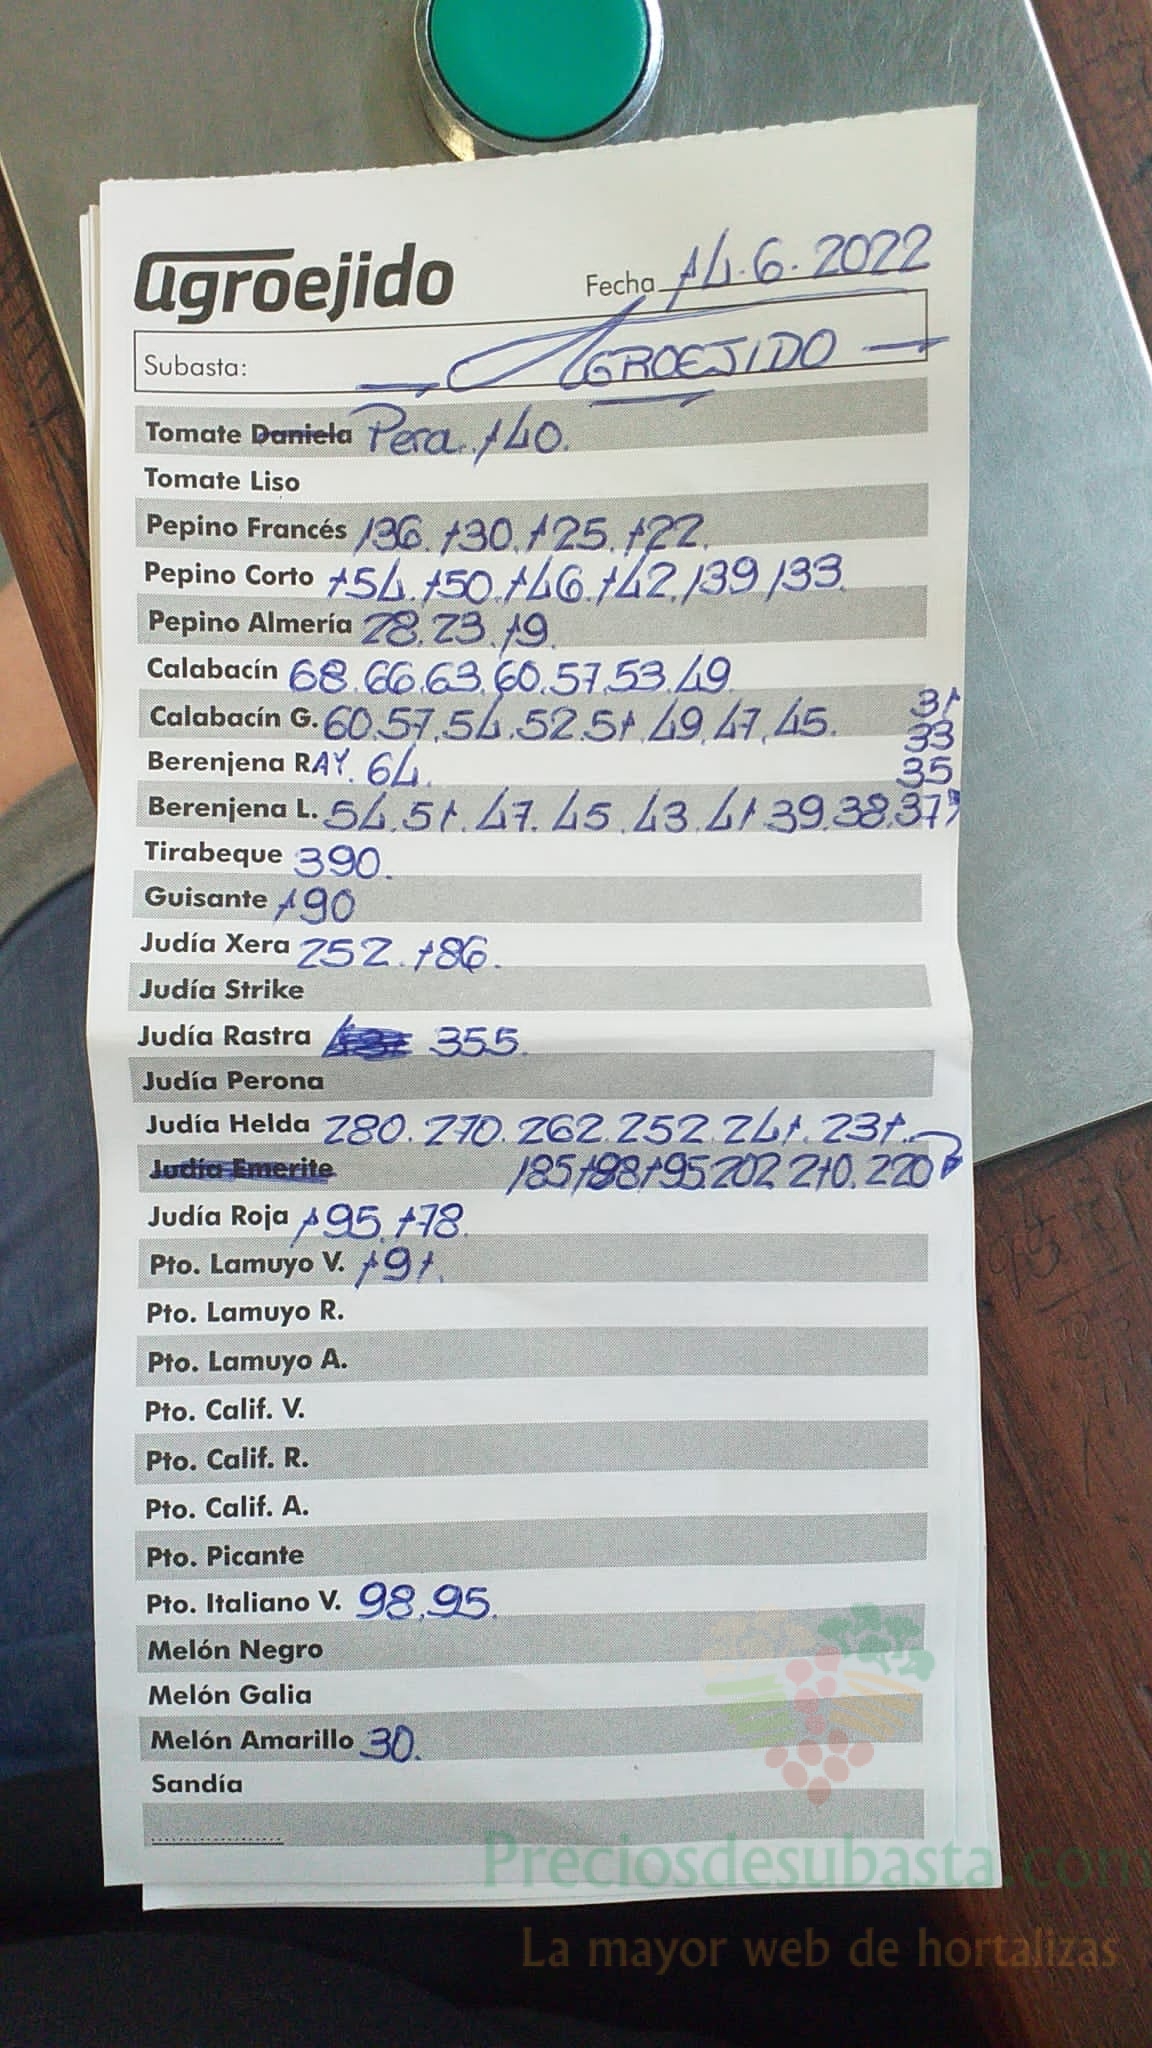 agroejido
Fecha 14.6.2022
Subasta: AGROEJIDO
Tomate Daniela Pera. 140.
Tomate Liso
Pepino Francés 136. 130. 125. 122.
Pepino Corto 154. 150. 146. 142. 139 133.
Pepino Almería 28. 23. 19.
Calabacín 68. 66. 63. 60. 57. 53. 49.
Calabacín G. 60. 57. 54. 52. 51. 49. 47. 45.
31
33
Berenjena RAY. 64.
35
Berenjena L. 54. 51. 47. 45. 43. 41 39. 38. 37
Tirabeque 390.
Guisante 190
Judía Xera 252. 186.
Judía Strike
Judía Rastra 355.
Judía Perona
Judía Helda 280. 270. 262. 252. 241. 231.
Judía Emerite 185 198 195 202 210. 220
Judía Roja 195. 178.
Pto. Lamuyo V. 191.
Pto. Lamuyo R.
Pto. Lamuyo A.
Pto. Calif. V.
Pto. Calif. R.
Pto. Calif. A.
Pto. Picante
Pto. Italiano V. 98. 95.
Melón Negro
Melón Galia
Melón Amarillo 30.
Sandía
Preciosdesubasta.com
La mayor web de hortalizas